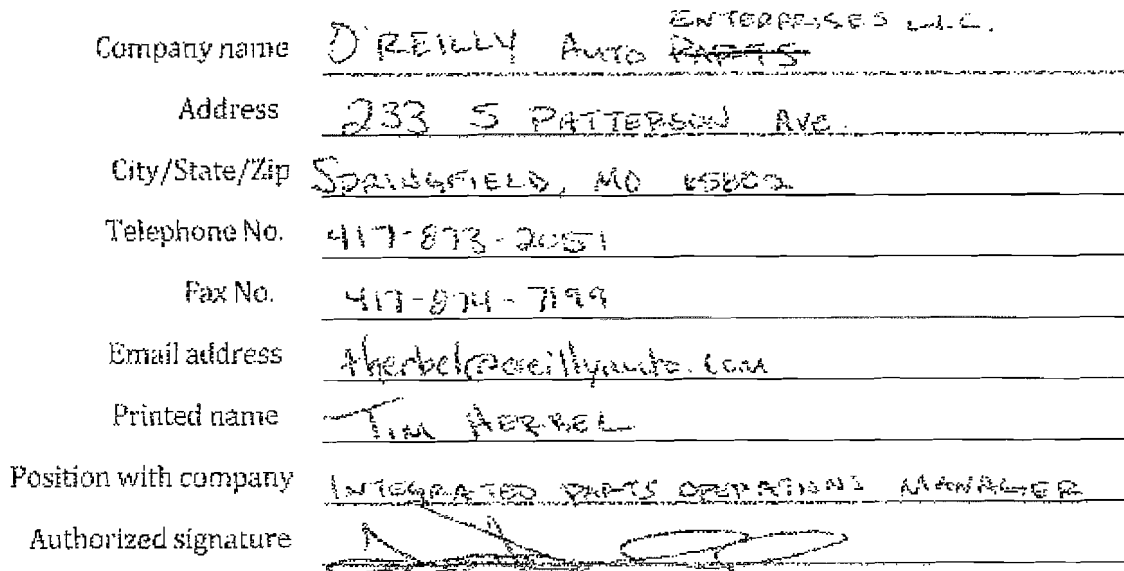 ENTERPRISES L.L.C.
Company name O'REILLY AUTO PARTS
Address 233 S PATTERSON AVE.
City/State/Zip SPRINGFIELD, MO 65802
Telephone No. 417-873-2051
Fax No. 417-874-7199
Email address therbel@oreillyauto.com
Printed name TIM HERBEL
Position with company INTEGRATED PARTS OPERATIONS MANAGER
Authorized signature